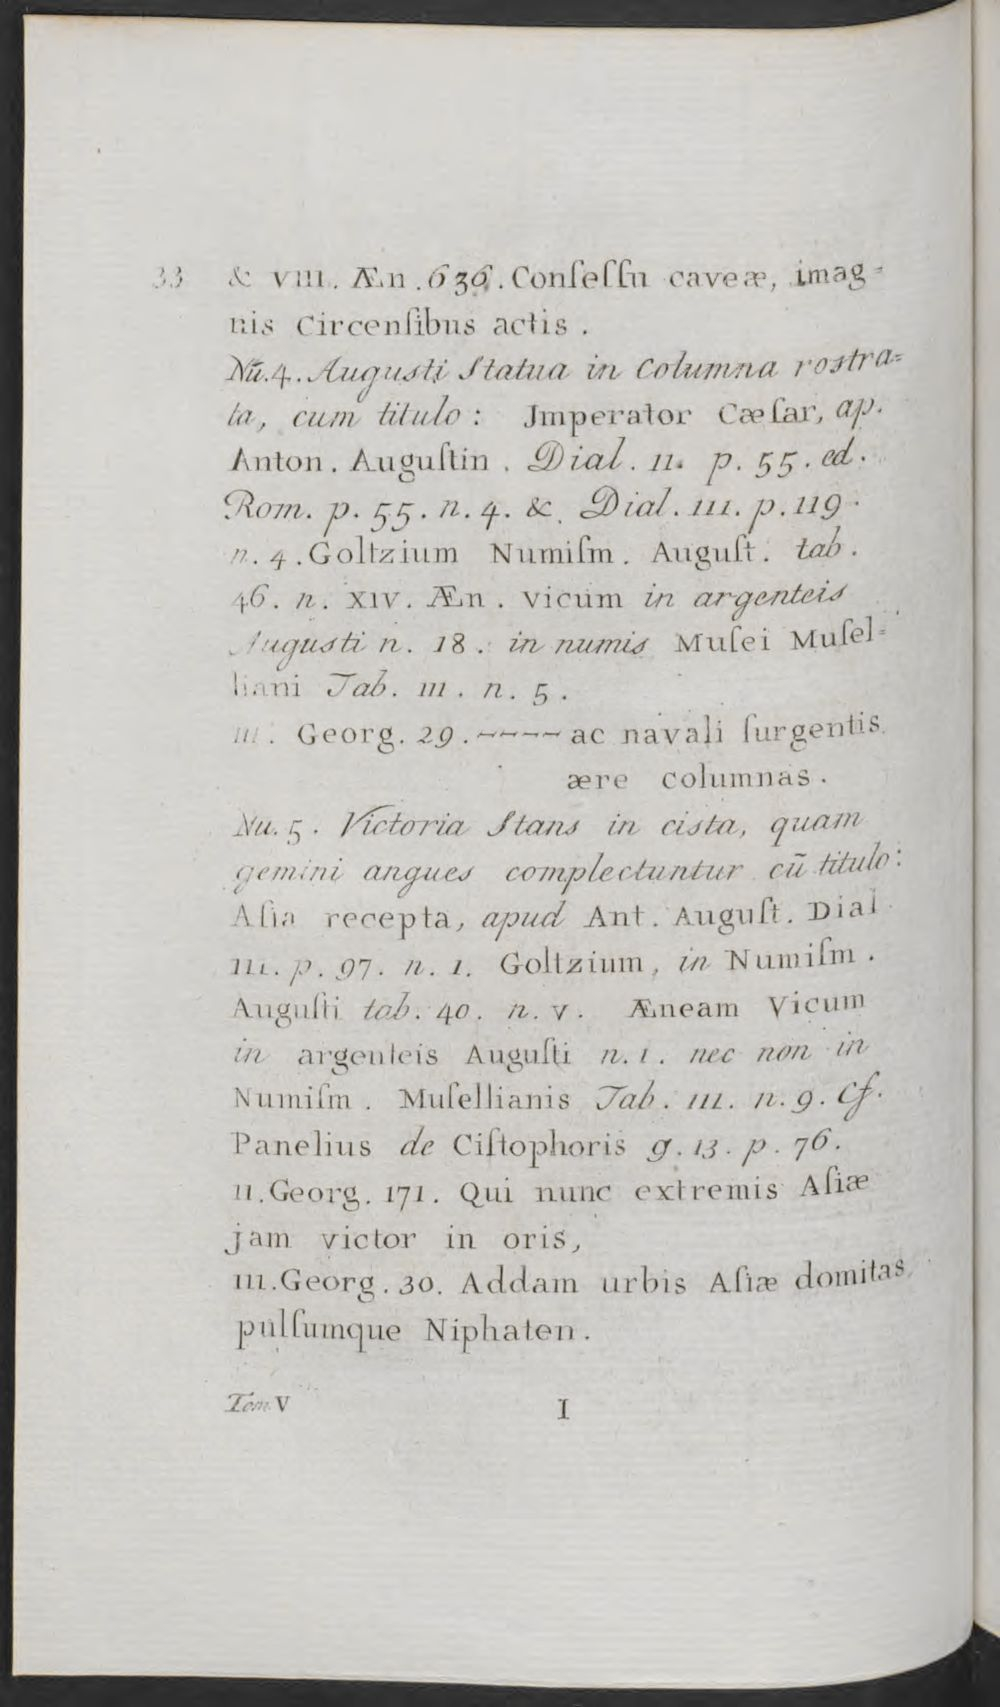 33 & VIII. Æn. 636. Conſeſſu caveæ, imag=
nis Circenſibus actis.
Nū. 4. Augusti Statua in Columna rostra=
ta, cum titulo: Jmperator Cæſar, ap.
Anton. Auguſtin. Dial. II. p. 55. ed.
Rom. p. 55. n. 4. & Dial. III. p. 119.
n. 4. Goltzium Numiſm. Auguſt. tab.
46. n. XIV. Æn. Vicum in argenteis
Augusti n. 18. in numis Muſei Muſel=
liani Tab. III. n. 5.
III. Georg. 29. ---- ac navali ſurgentis
ære columnas.
Nu. 5. Victoria Stans in cista, quam
gemini angues complectuntur cū titulo:
Aſia recepta, apud Ant. Auguſt. Dial
III. p. 97. n. 1. Goltzium, in Numiſm.
Auguſti tab. 40. n. V. Æneam Vicum
in argenteis Auguſti n. 1. nec non in
Numiſm. Muſellianis Tab. III. n. 9. Cf.
Panelius de Ciſtophoris g. 13. p. 76.
II. Georg. 171. Qui nunc extremis Aſiæ
jam victor in oris,
III. Georg. 30. Addam urbis Aſiæ domitas,
pulſumque Niphaten.
Tom. V I